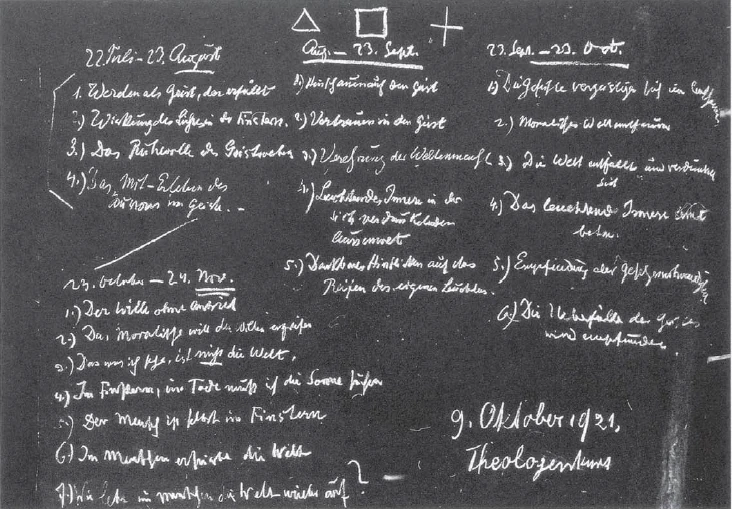 22. Juli – 23. August
1. Werden als Geist, der erfüllt
2.) Wirkung des Lichtes im Finstern.
3.) Das Ruhevolle des Geistwebens
4.) Das Mit-Erleben des
im Geiste. –
Aug. – 23. Sept.
1.) Hinschauen auf den Geist
2.) Vertrauen in den Geist
3.) Verehrung der Weltenmacht
4.) Leuchtendes Innere in der
sich verdunkelnden
Aussenwelt
5.) Dankbares Hinblicken auf das
Reifen des eigenen Leuchtens.
23. Sept. – 23. Oct.
1.)
2.) Moralisches
3.) Die Welt entfällt und verdunkelt
sich
4.) Das leuchtend Innere
beten.
5.) Empfindung der
6.) Die der Geistes
wird empfunden.
23. October – 24. Nov.
1.) Der Wille ohne Antrieb
2.) Das Moralische will den Willen ergreifen
3.) Das was ich sehe, ist nicht die Welt,
4.) Im Finstern, im Tode muss ich die Sonne suchen
5.) Der Mensch ist selbst im Finstern
6.) Im Menschen erstirbt die Welt
7.) Wie lebe im Menschen die Welt wieder auf?
9. Oktober 1921,
Theologenkurs